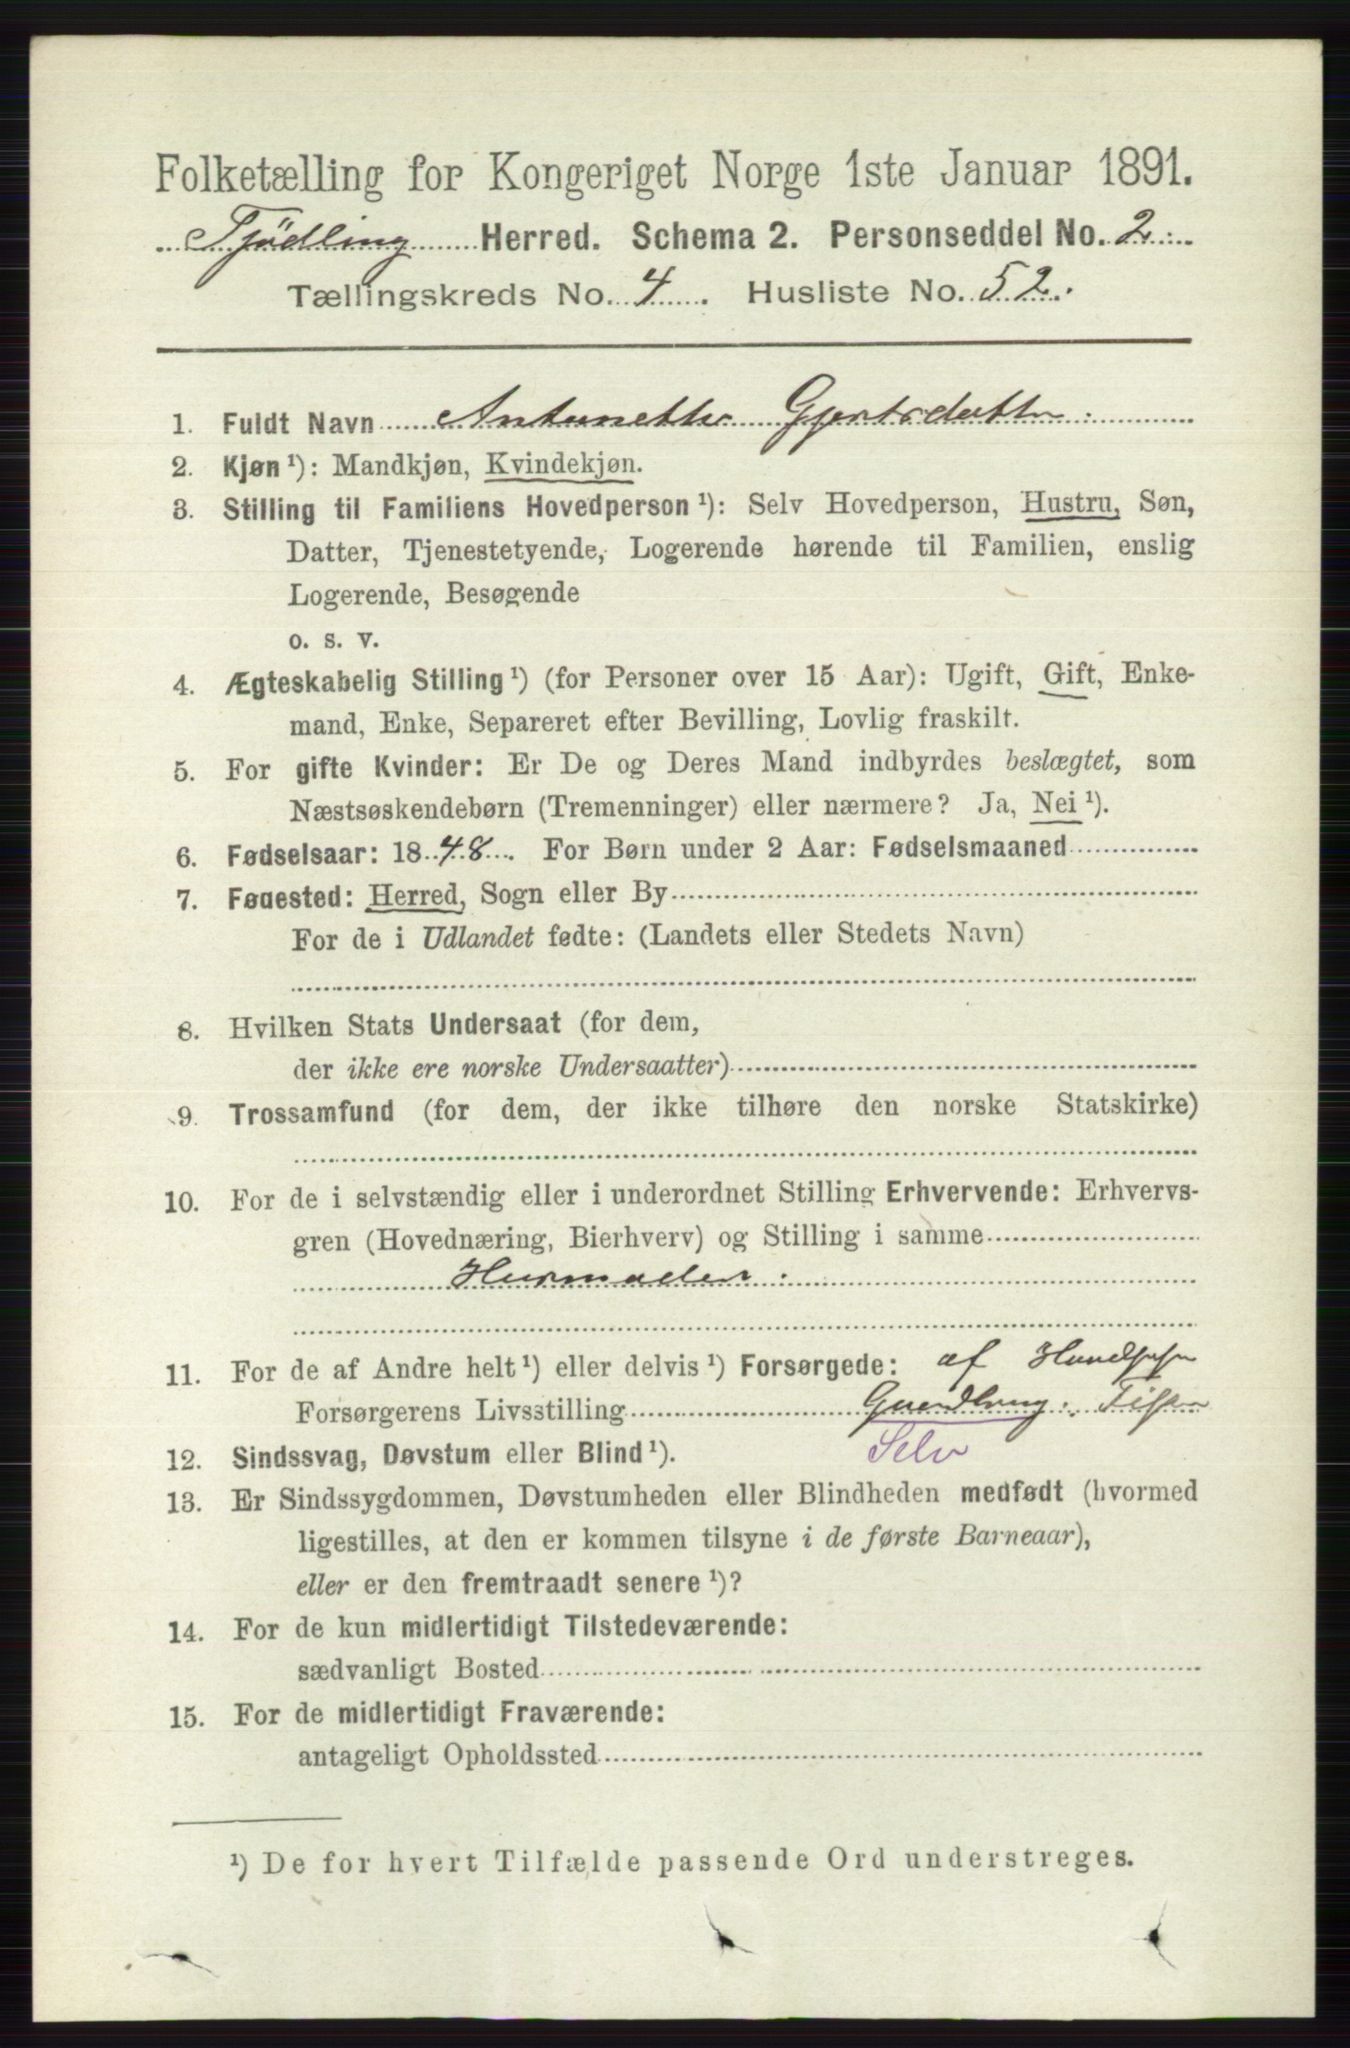 Folketælling for Kongeriget Norge 1ste Januar 1891.
Tjödling Herred. Schema 2. Personseddel No. 2.
Tællingskreds No. 4. Husliste No. 52.
1. Fuldt Navn Antonette Gjertsdatter
2. Kjøn ¹): Mandkjøn, Kvindekjøn.
3. Stilling til Familiens Hovedperson ¹): Selv Hovedperson, Hustru, Søn,
Datter, Tjenestetyende, Logerende hørende til Familien, enslig
Logerende, Besøgende
o. s. v.
4. Ægteskabelig Stilling ¹) (for Personer over 15 Aar): Ugift, Gift, Enke-
mand, Enke, Separeret efter Bevilling, Lovlig fraskilt.
5. For gifte Kvinder: Er De og Deres Mand indbyrdes beslægtet, som
Næstsøskendebørn (Tremenninger) eller nærmere? Ja, Nei ¹).
6. Fødselsaar: 1848. For Børn under 2 Aar: Fødselsmaaned
7. Føgested: Herred, Sogn eller By
For de i Udlandet fødte: (Landets eller Stedets Navn)
8. Hvilken Stats Undersaat (for dem,
der ikke ere norske Undersaatter)
9. Trossamfund (for dem, der ikke tilhøre den norske Statskirke)
10. For de i selvstændig eller i underordnet Stilling Erhvervende: Erhvervs-
gren (Hovednæring, Bierhverv) og Stilling i samme
Husmoder
11. For de af Andre helt ¹) eller delvis ¹) Forsørgede: af
Forsørgerens Livsstilling
Selv
12. Sindssvag, Døvstum eller Blind ¹).
13. Er Sindssygdommen, Døvstumheden eller Blindheden medfødt (hvormed
ligestilles, at den er kommen tilsyne i de første Barneaar),
eller er den fremtraadt senere ¹)?
14. For de kun midlertidigt Tilstedeværende:
sædvanligt Bosted
15. For de midlertidigt Fraværende:
antageligt Opholdssted
¹) De for hvert Tilfælde passende Ord understreges.